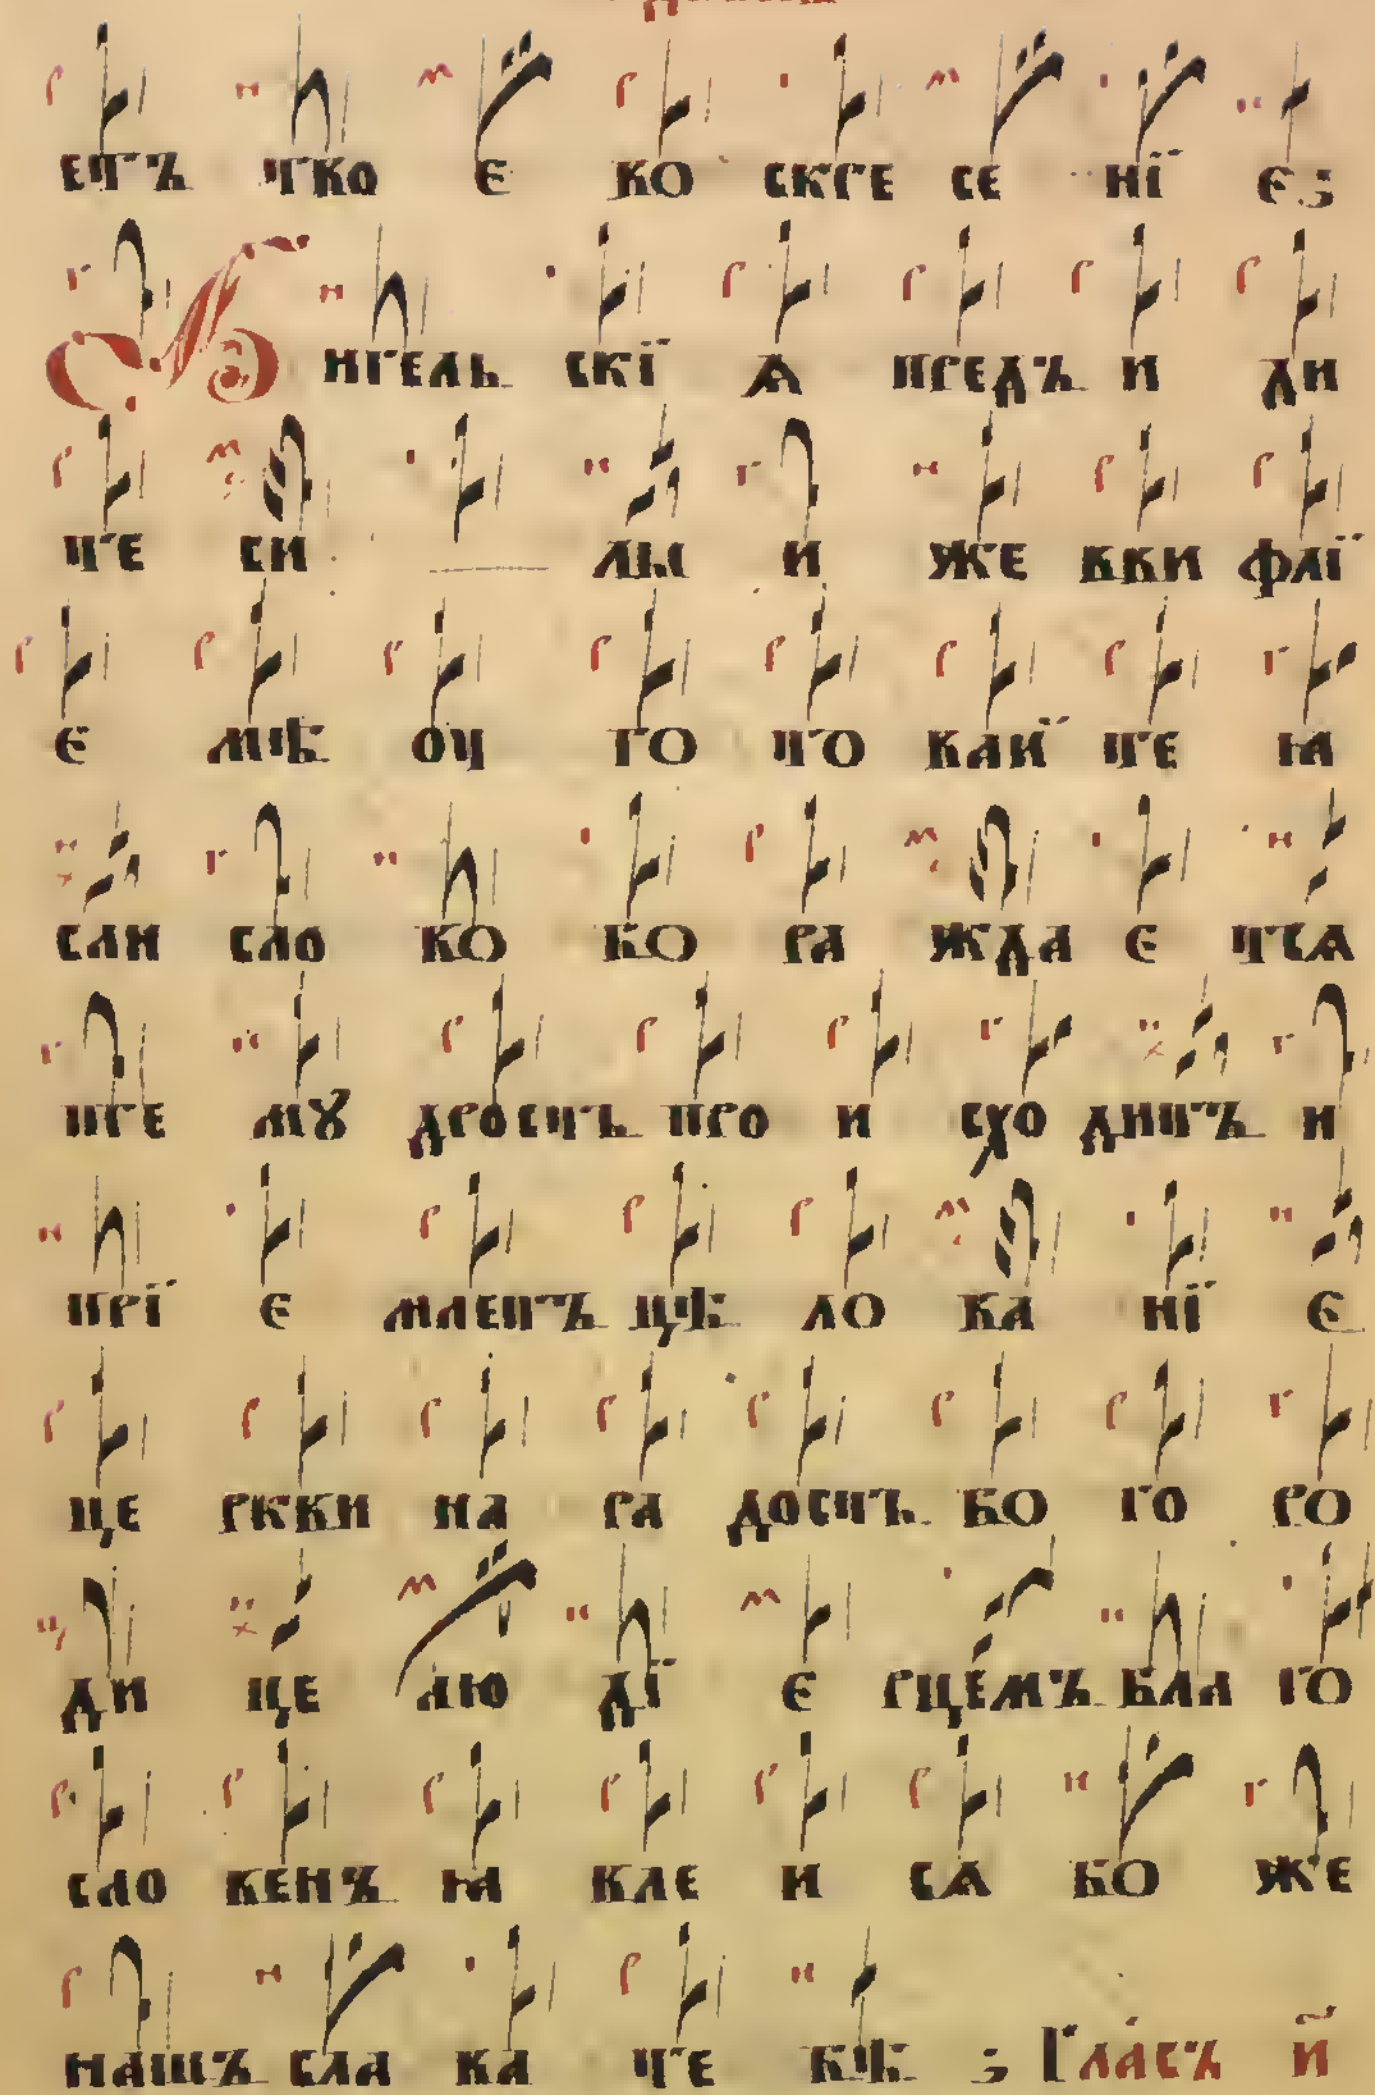 етъ тво є во скре се нї є ;
А нгель скї ѧ предъ и ди
те си лы и же вки флї
є мѣ оу го то вай те ꙗ
сли сло во бо ра жда є тсѧ
пре мꙋ дрость про и схо дитъ и
прї є млетъ цѣ ло ва нї є
це ркви на ра дость бо го ро
ди це лю дї є рце́мъ бла го
сло венъ ꙗ вле и сѧ бо же
нашъ сла ва те бѣ ; Гла́съ и҃